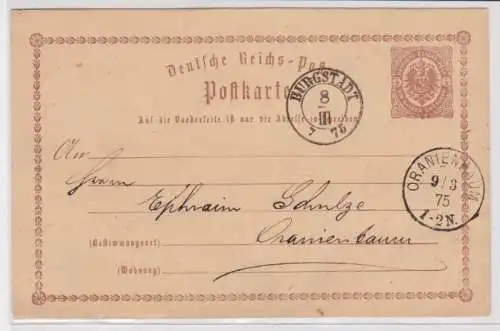 Deutsche Reichs-Pos
Postkarte
BURGSTADT
8
III
7 75
Auf die Vorderseite ist nur die Adresse zu schreiben
ORANIENBAUM
9/3
75
1-2N.
An
Herrn
Ephraim Schulze
(Bestimmungsort) Oranienbaum
(Wohnung)